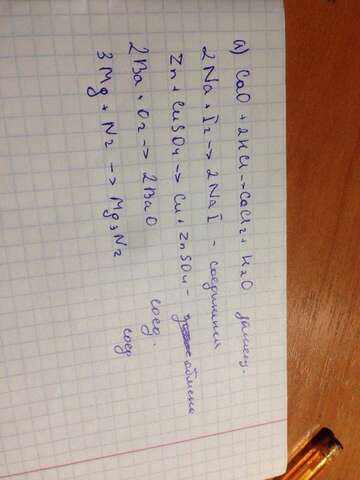 а) CaO + 2HCl → CaCl2 + H2O замещ.
2Na + I2 → 2NaI - соединения
Zn + CuSO4 → Cu + ZnSO4 - обмена
2Ba + O2 → 2BaO соед.
3Mg + N2 → Mg3N2 соед